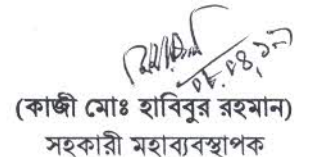 ০৮.০৪.১৩
(কাজী মোঃ হাবিবুর রহমান)
সহকারী মহাব্যবস্থাপক